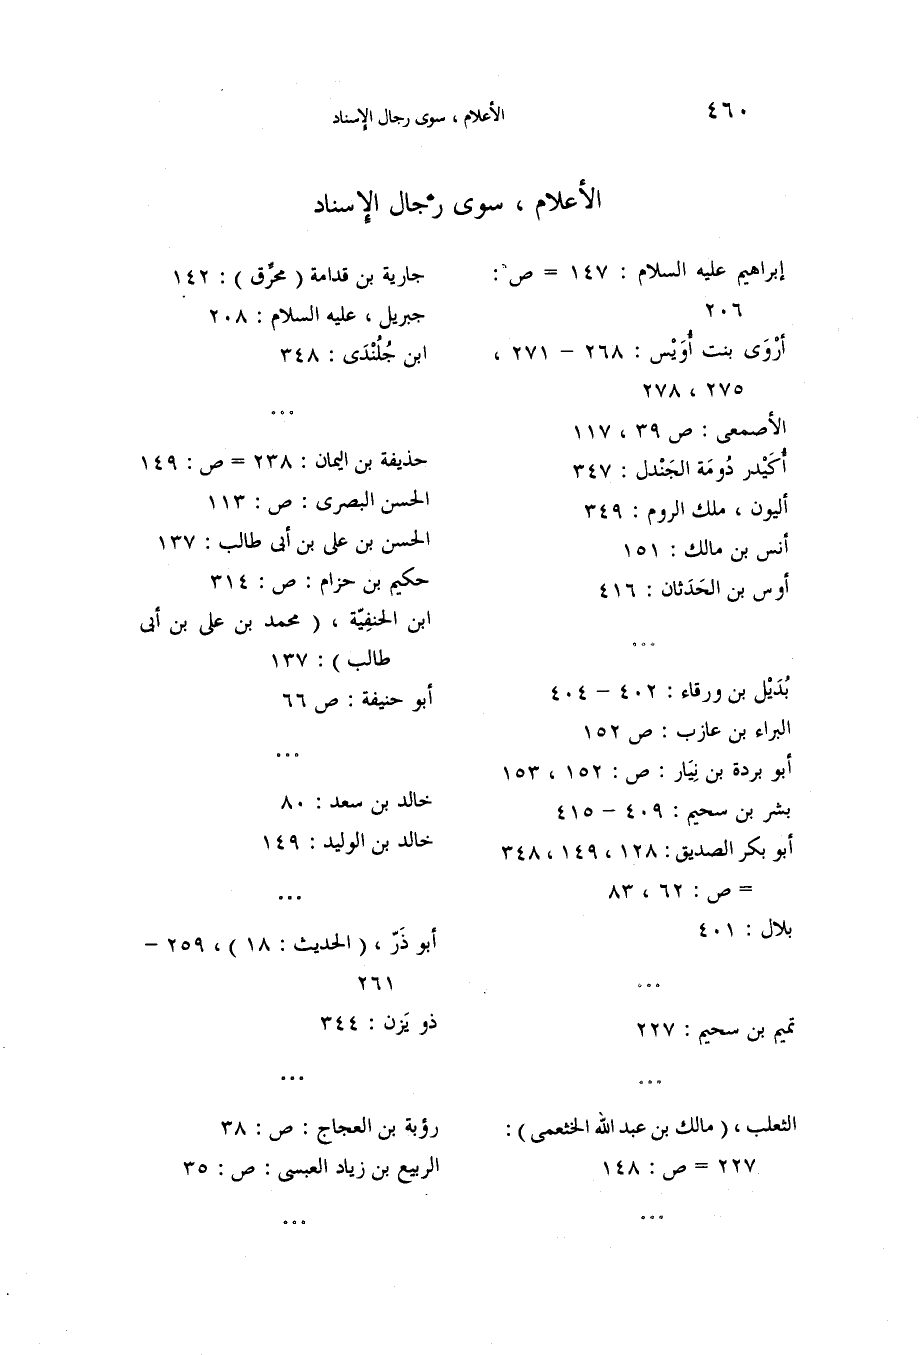 ٤٦٠
الأعلام ، سوى رجال الإسناد
الأعلام ، سوى رجال الإسناد
إبراهيم عليه السلام : ١٤٧ = ص :
٢٠٦
أرْوَى بنت أُوَيْس : ٢٦٨ – ٢٧١ ،
٢٧٥ ، ٢٧٨
الأصمعى : ص ٣٩ ، ١١٧
أُكَيْدر دُومَة الجَنْدل : ٣٤٧
أليون ، ملك الروم : ٣٤٩
أنس بن مالك : ١٥١
أوس بن الحَدَثان : ٤١٦
°°°
بُدَيْل بن ورقاء : ٤٠٢ – ٤٠٤
البراء بن عازب : ص ١٥٢
أبو بردة بن نِيَار : ص : ١٥٢ ، ١٥٣
بشر بن سحيم : ٤٠٩ – ٤١٥
أبو بكر الصديق : ١٢٨ ، ١٤٩ ، ٣٤٨
= ص : ٦٢ ، ٨٣
بلال : ٤٠١
°°°
تميم بن سحيم : ٢٢٧
°°°
الثعلب ، ( مالك بن عبد الله الخثعمى ) :
٢٢٧ = ص : ١٤٨
°°°
جارية بن قدامة ( محرِّق ) : ١٤٢
جبريل ، عليه السلام : ٢٠٨
ابن جُلُنْدَى : ٣٤٨
°°°
حذيفة بن اليمان : ٢٣٨ = ص : ١٤٩
الحسن البصرى : ص : ١١٣
الحسن بن على بن أبى طالب : ١٣٧
حكيم بن حزام : ص : ٣١٤
ابن الحنفِيّة ، ( محمد بن على بن أبى
طالب ) : ١٣٧
أبو حنيفة : ص ٦٦
°°°
خالد بن سعد : ٨٠
خالد بن الوليد : ١٤٩
°°°
أبو ذَرّ ، ( الحديث : ١٨ ) ، ٢٥٩ –
٢٦١
ذو يَزن : ٣٤٤
°°°
رؤبة بن العجاج : ص : ٣٨
الربيع بن زياد العبسى : ص : ٣٥
°°°